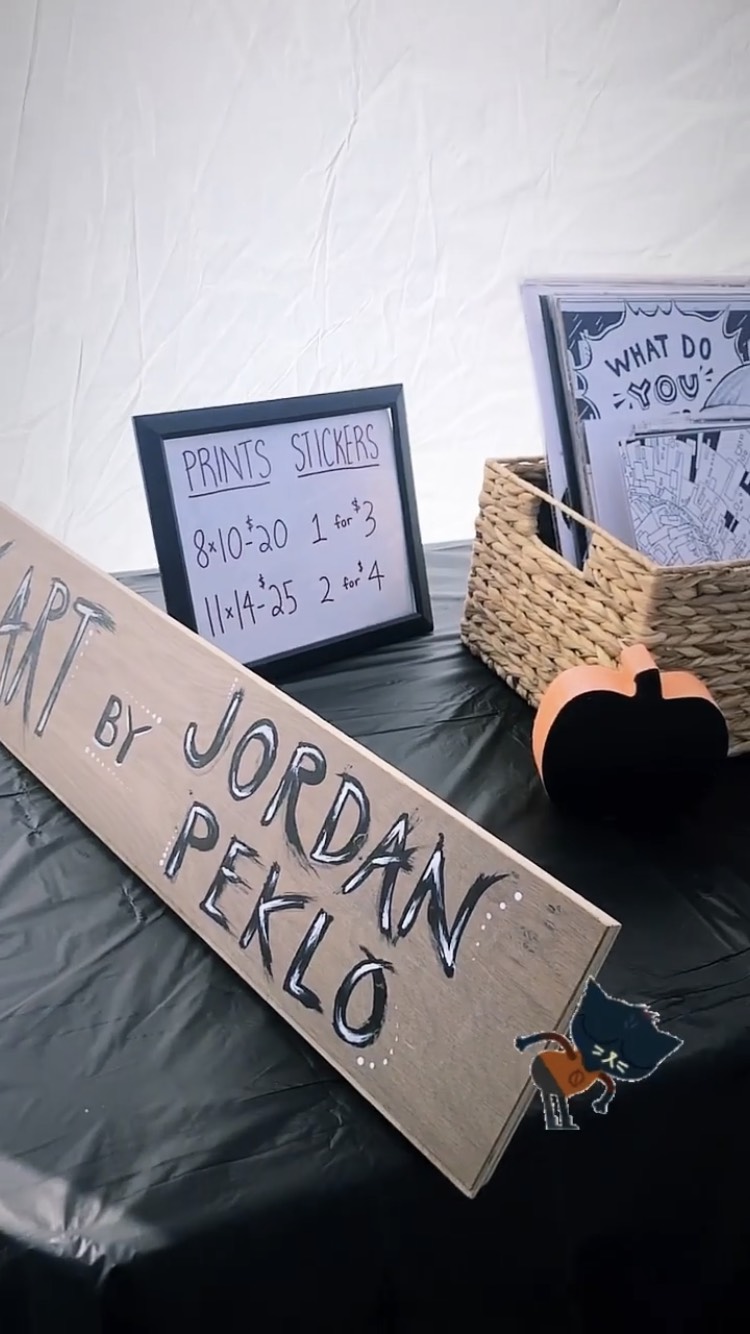 PRINTS STICKERS
8x10-$20 1 for $3
11x14-$25 2 for $4
WHAT DO
YOU
ART
BY
JORDAN
PEKLO